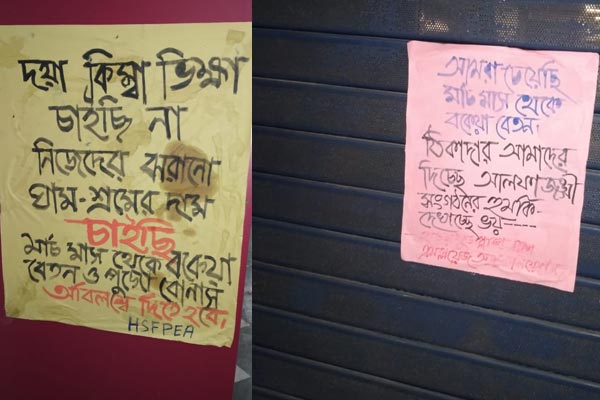 দয়া কিম্বা ভিক্ষা
চাইছি না
নিজেদের ঝরানো
ঘাম-শ্রমের দাম
চাইছি
মার্চ মাস থেকে বকেয়া
বেতন ও পুজো বোনাস
অবিলম্বে দিতে হবে,
HSFPEA
আমরা চেয়েছি
মার্চ মাস থেকে
বকেয়া বেতন,
ঠিকাদার আমাদের
দিচ্ছে আলফা জঙ্গী
সংগঠনের হুমকি-
দেখাচ্ছে ভয়----